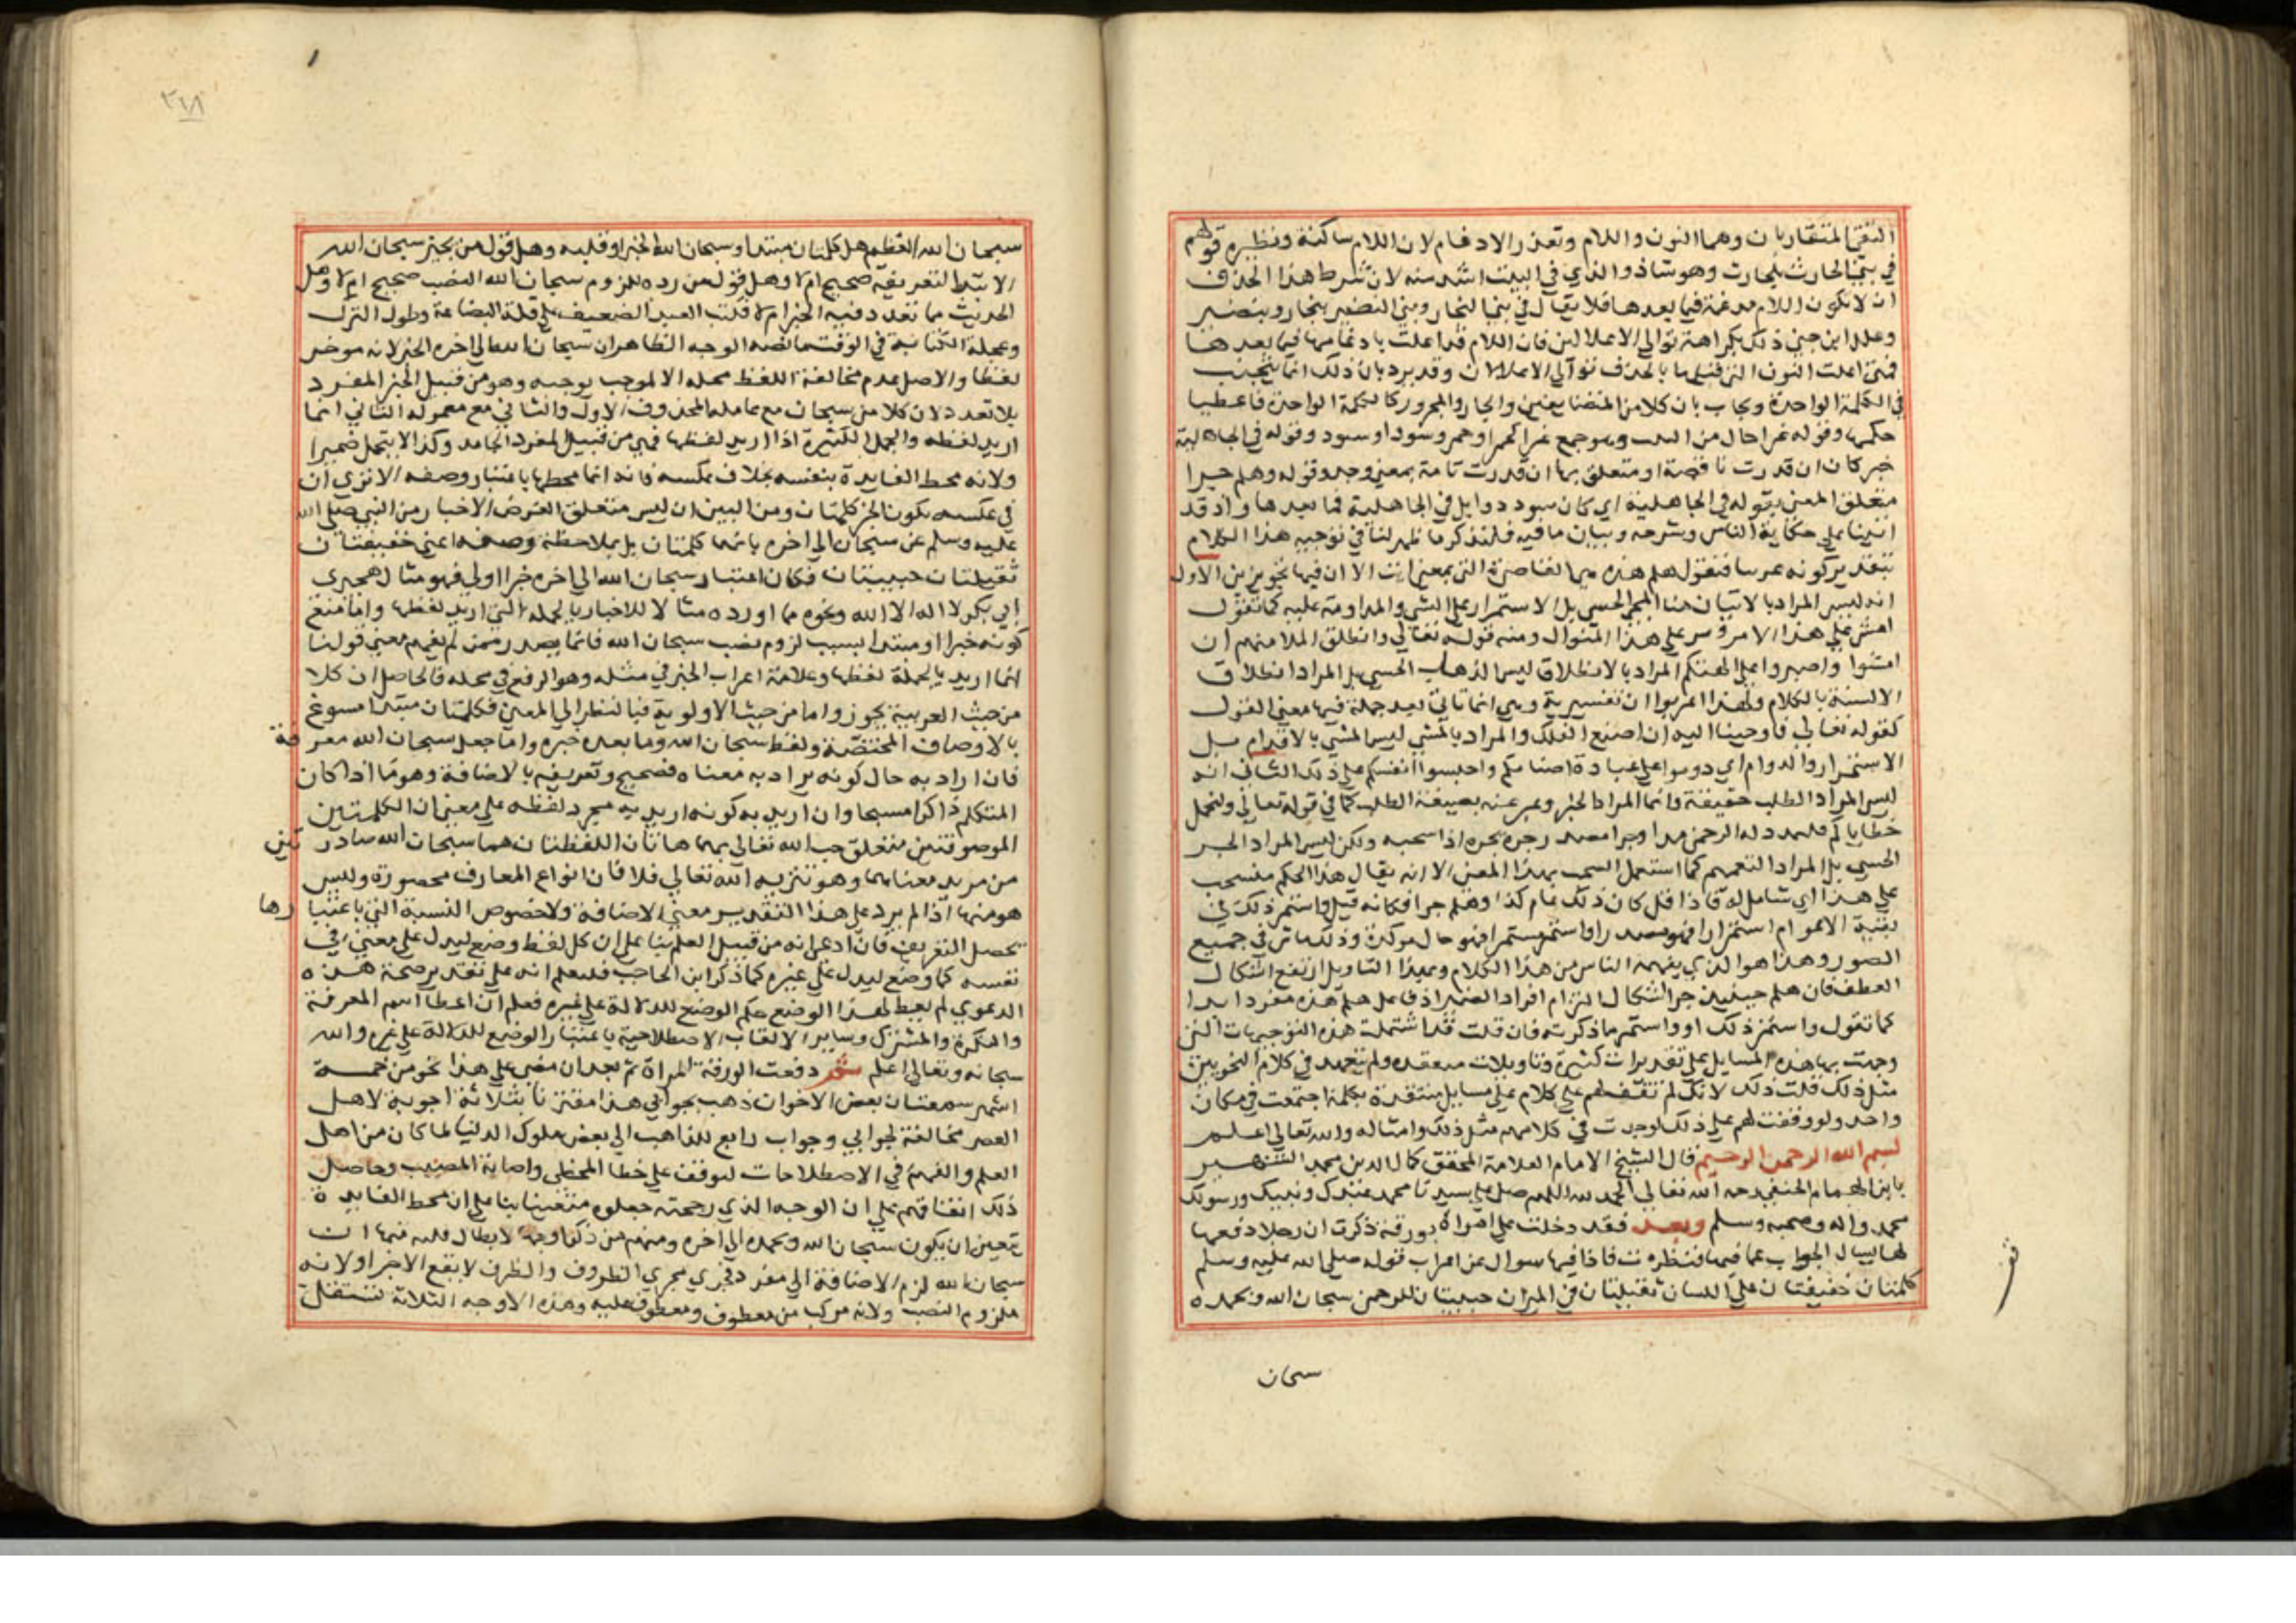 التقي المتقاربان وهما النون واللام وتعذر الادغام لان اللام ساكنة ونظيره قولهم
في بني الحارث بلحارث وهو شاذ والذي في البيت اشد منه لان شرط هذا الحذف
ان لا تكون اللام مدغمة فيما بعدها فلا يقال في بني النجار وبني النضير بنجار وبنضير
وعلل ابن جني ذلك بكراهة توالي الاعلالين فان اللام قد اعلت بادغامها فيما بعدها
فمتى اعلت النون التي قبلها بالحذف توالي الاعلالان وقد يرد بان ذلك انما يتجنب
في الكلمة الواحدة ويجاب بان كلا من المتضايفين والجار والمجرور كالكلمة الواحدة فاعطيا
حكمها وقوله غمرا حال من وهو جمع غمرا كحمرا وحمر وسودا وسود وقوله في الجاهلية
خبر كان ان قدرت ناقصة او متعلق بها ان قدرت تامة بمعنى وجد وقوله وهلم جرا
متعلق المعنى بقوله في الجاهلية اي كان سودد وايل في الجاهلية فما بعدها واذ قد
اتينا على حكاية الناس وشرحه وبيان ما فيه فلنذكر ما ظهر لنا في توجيه هذا الكلام
بتقدير كونه عربيا فنقول هلم هذه هي القاصرة التي بمعنى ايت الا ان فيها تجوزين الاول
انه ليس المراد بالاتيان هنا المجي الحسي بل الاستمرار على الشي والمداومة عليه كما تقول
امش على هذا الامر وسر على هذا المنوال ومنه قوله تعالي وانطلق الملا منهم ان
امشوا واصبروا على الهتكم المراد بالانطلاق ليس الذهاب الحسي بل المراد انطلاق
الالسنة بالكلام ولهذا اعربوا ان تفسيرية وهي انما تاتي بعد جملة فيها معنى القول
كقوله تعالي فاوحينا اليه ان اصنع الفلك والمراد بالمشي ليس المشي بالاقدام بل
الاستمرار والدوام اي دوموا على عبادة اصنامكم واحبسوا انفسكم على ذلك الثاني انه
ليس المراد الطلب حقيقة وانما المراد الخبر وعبر عنه بصيغة الطلب كما في قوله تعالي ولنحمل
خطاياكم فليمدد له الرحمن مدا وجرا مصدر جره يجره اذا سحبه ولكن ليس المراد الجر
الحسي بل المراد التعميم كما استعمل السحب بهذا المعنى الا انه يقال هذا الحكم منسحب
على هذا اي شامل له فاذا قيل كان ذلك عام كذا وهلم جرا فكانه قيل واستمر ذلك في
بقية الاعوام استمرارا فهو مصدر او استمر مستمرا فهو حال موكدة وذلك ماش في جميع
الصور وهذا هو الذي يفهمه الناس من هذا الكلام وبهذا التاويل ارتفع اشكال
العطف فان هلم حينيذ خبر واشكال التزام افراد الضمير اذ فاعل هلم هذه مفرد ابدا
كما تقول واستمر ذلك او واستمر ما ذكرته فان قلت قد اشتملت هذه التوجيهات التي
وجهت بها هذه المسايل على تقديرات كثيرة وتاويلات متعقدة ولم تعهد في كلام النحويين
مثل ذلك قلت ذلك لانك لم تقف لهم على كلام على مسايل متعقدة بكلمة اجتمعت في مكان
واحد ولو وقفت لهم على ذلك لوجدت في كلامهم مثل ذلك وامثاله والله تعالي اعلم
بسم الله الرحمن الرحيم قال الشيخ الامام العلامة المحقق كمال الدين محمد الشهير
بابن الهمام الحنفي رحمه الله تعالي الحمد لله اللهم صل على سيدنا محمد عبدك ونبيك ورسولك
محمد واله وصحبه وسلم وبعد فقد دخلت علي امراة بورقة ذكرت ان رجلا دفعها
لها يسال الجواب عما فيها فنظرت فاذا فيها سوال عن اعراب قوله صلى الله عليه وسلم
كلمتان خفيفتان على اللسان ثقيلتان في الميزان حبيبتان للرحمن سبحان الله وبحمده
سبحان
٢١٨
سبحان الله العظيم هل كلمتان مبتدا وسبحان الله الخبر او قلبه وهل قول من يجيز سبحان الله
الابتدا لتعريفه صحيح ام لا وهل قول من رده للزوم سبحان الله النصب صحيح ام لا وهل
الحديث مما تعدد فيه الخبر ام لا فكتب العبد الضعيف على قلة البضاعة وطول الترك
وعجلة الكتابة في الوقت ما نصه الوجه الظاهر ان سبحان الله الي اخره الخبر لانه موخر
لفظا والاصل عدم مخالفة اللفظ محله الا لموجب يوجبه وهو من قبيل الخبر المفرد
بلا تعدد لان كلا من سبحان مع عامله المحذوف الاول والثاني مع معموله الثاني انما
اريد لفظه والجمل الكثيرة اذا اريد لفظها فهي من قبيل المفرد الجامد ولذا لا يتحمل ضميرا
ولانه محط الفايدة بنفسه بخلاف عكسه فانه انما محطها باعتبار وصفه الا ترى ان
في عكسه يكون الخبر كلمتان ومن البين ان ليس متعلق الغرض الاخبار من النبي صلى الله
عليه وسلم عن سبحان الي اخره بانهما كلمتان بل بملاحظة وصفه اعني خفيفتان
ثقيلتان حبيبتان فكان اعتبار سبحان الله الي اخره خبرا اولى فهو مثال هجيري
ابي بكر لا اله الا الله ونحوه مما اورده مثالا للاخبار بالجملة التي اريد لفظها واما منع
كونه خبرا او مبتدا بسبب لزوم نصب سبحان الله فانما يصدر ممن لم يفهم معنى قولنا
انما اريد بالجملة لفظها وعلامة اعراب الخبر في مثله وهو الرفع في محله فالحاصل ان كلا
من حيث العربية يجوز واما من حيث الاولوية فبالنظر الي المعنى فكلمتان مبتدا مسوغ
بالاوصاف المختصة ولفظ سبحان الله وما بعده خبره واما جعل سبحان الله معرفة
فان اراد به حال كونه يراد به معناه فصحيح وتعريفه بالاضافة وهو ما اذا كان
المتكلم ذاكرا مسبحا وان اريد به كونه اريد به مجرد لفظه على معنى ان الكلمتين
الموصوفتين متعلق حب الله تعالي بهما هاتان اللفظتان هما سبحان الله صادرتين
من مريد معناهما وهو تنزيه الله تعالي فلا فان انواع المعارف محصورة وليس
هو منها اذا لم يرد على هذا التقدير معنى الاضافة ولا خصوص النسبة التي باعتبارها
تحصل التعريف فان ادعى انه من قبيل العلم بنا على ان كل لفظ وضع ليدل على معنى في
نفسه كما وضع ليدل على غيره كما ذكر ابن الحاجب فليعلم انه على تقدير صحة هذه
الدعوي لم يعط لهذا الوضع حكم الوضع للدلالة على غيره فعلم ان اعطا اسم المعرفة
والنكرة والمشترك وساير الالقاب الاصطلاحية باعتبار الوضع للدلالة على غيره والله
سبحانه وتعالي اعلم ثم دفعت الورقة للمراة ثم بعد ان مضى على هذا نحو من خمسة
اشهر سمعت ان بعض الاخوان ذهب بجوابي هذا مقترنا بثلاثة اجوبة لاهل
العصر مخالفة لجوابي وجواب رابع للذاهب الي بعض ملوك الدنيا لما كان من اهل
العلم والفهم في الاصطلاحات ليوقف على خطا المخطي واصابة المصيب وحاصل
ذلك اتفاقهم على ان الوجه الذي رجحته جعلوه متعينا بنا على ان محط الفايدة
يتعين ان يكون سبحان الله وبحمده الي اخره ومنهم من ذكر اوجها لابطال قلبه منها ان
سبحان الله لزم الاضافة الي مفرد فجري مجري الظروف والظرف لا يقع الا خبرا ولانه
ملزوم النصب ولانه مركب من معطوف ومعطوف عليه وهذه الاوجه الثلاثة تستقل